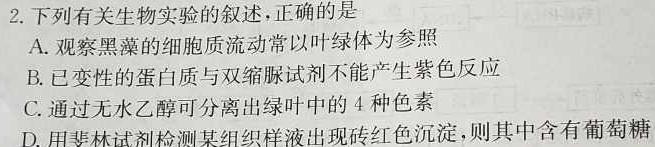 2. 下列有关生物实验的叙述,正确的是
A. 观察黑藻的细胞质流动常以叶绿体为参照
B. 已变性的蛋白质与双缩脲试剂不能产生紫色反应
C. 通过无水乙醇可分离出绿叶中的 4 种色素
D. 用斐林试剂检测某组织样液出现砖红色沉淀,则其中含有葡萄糖